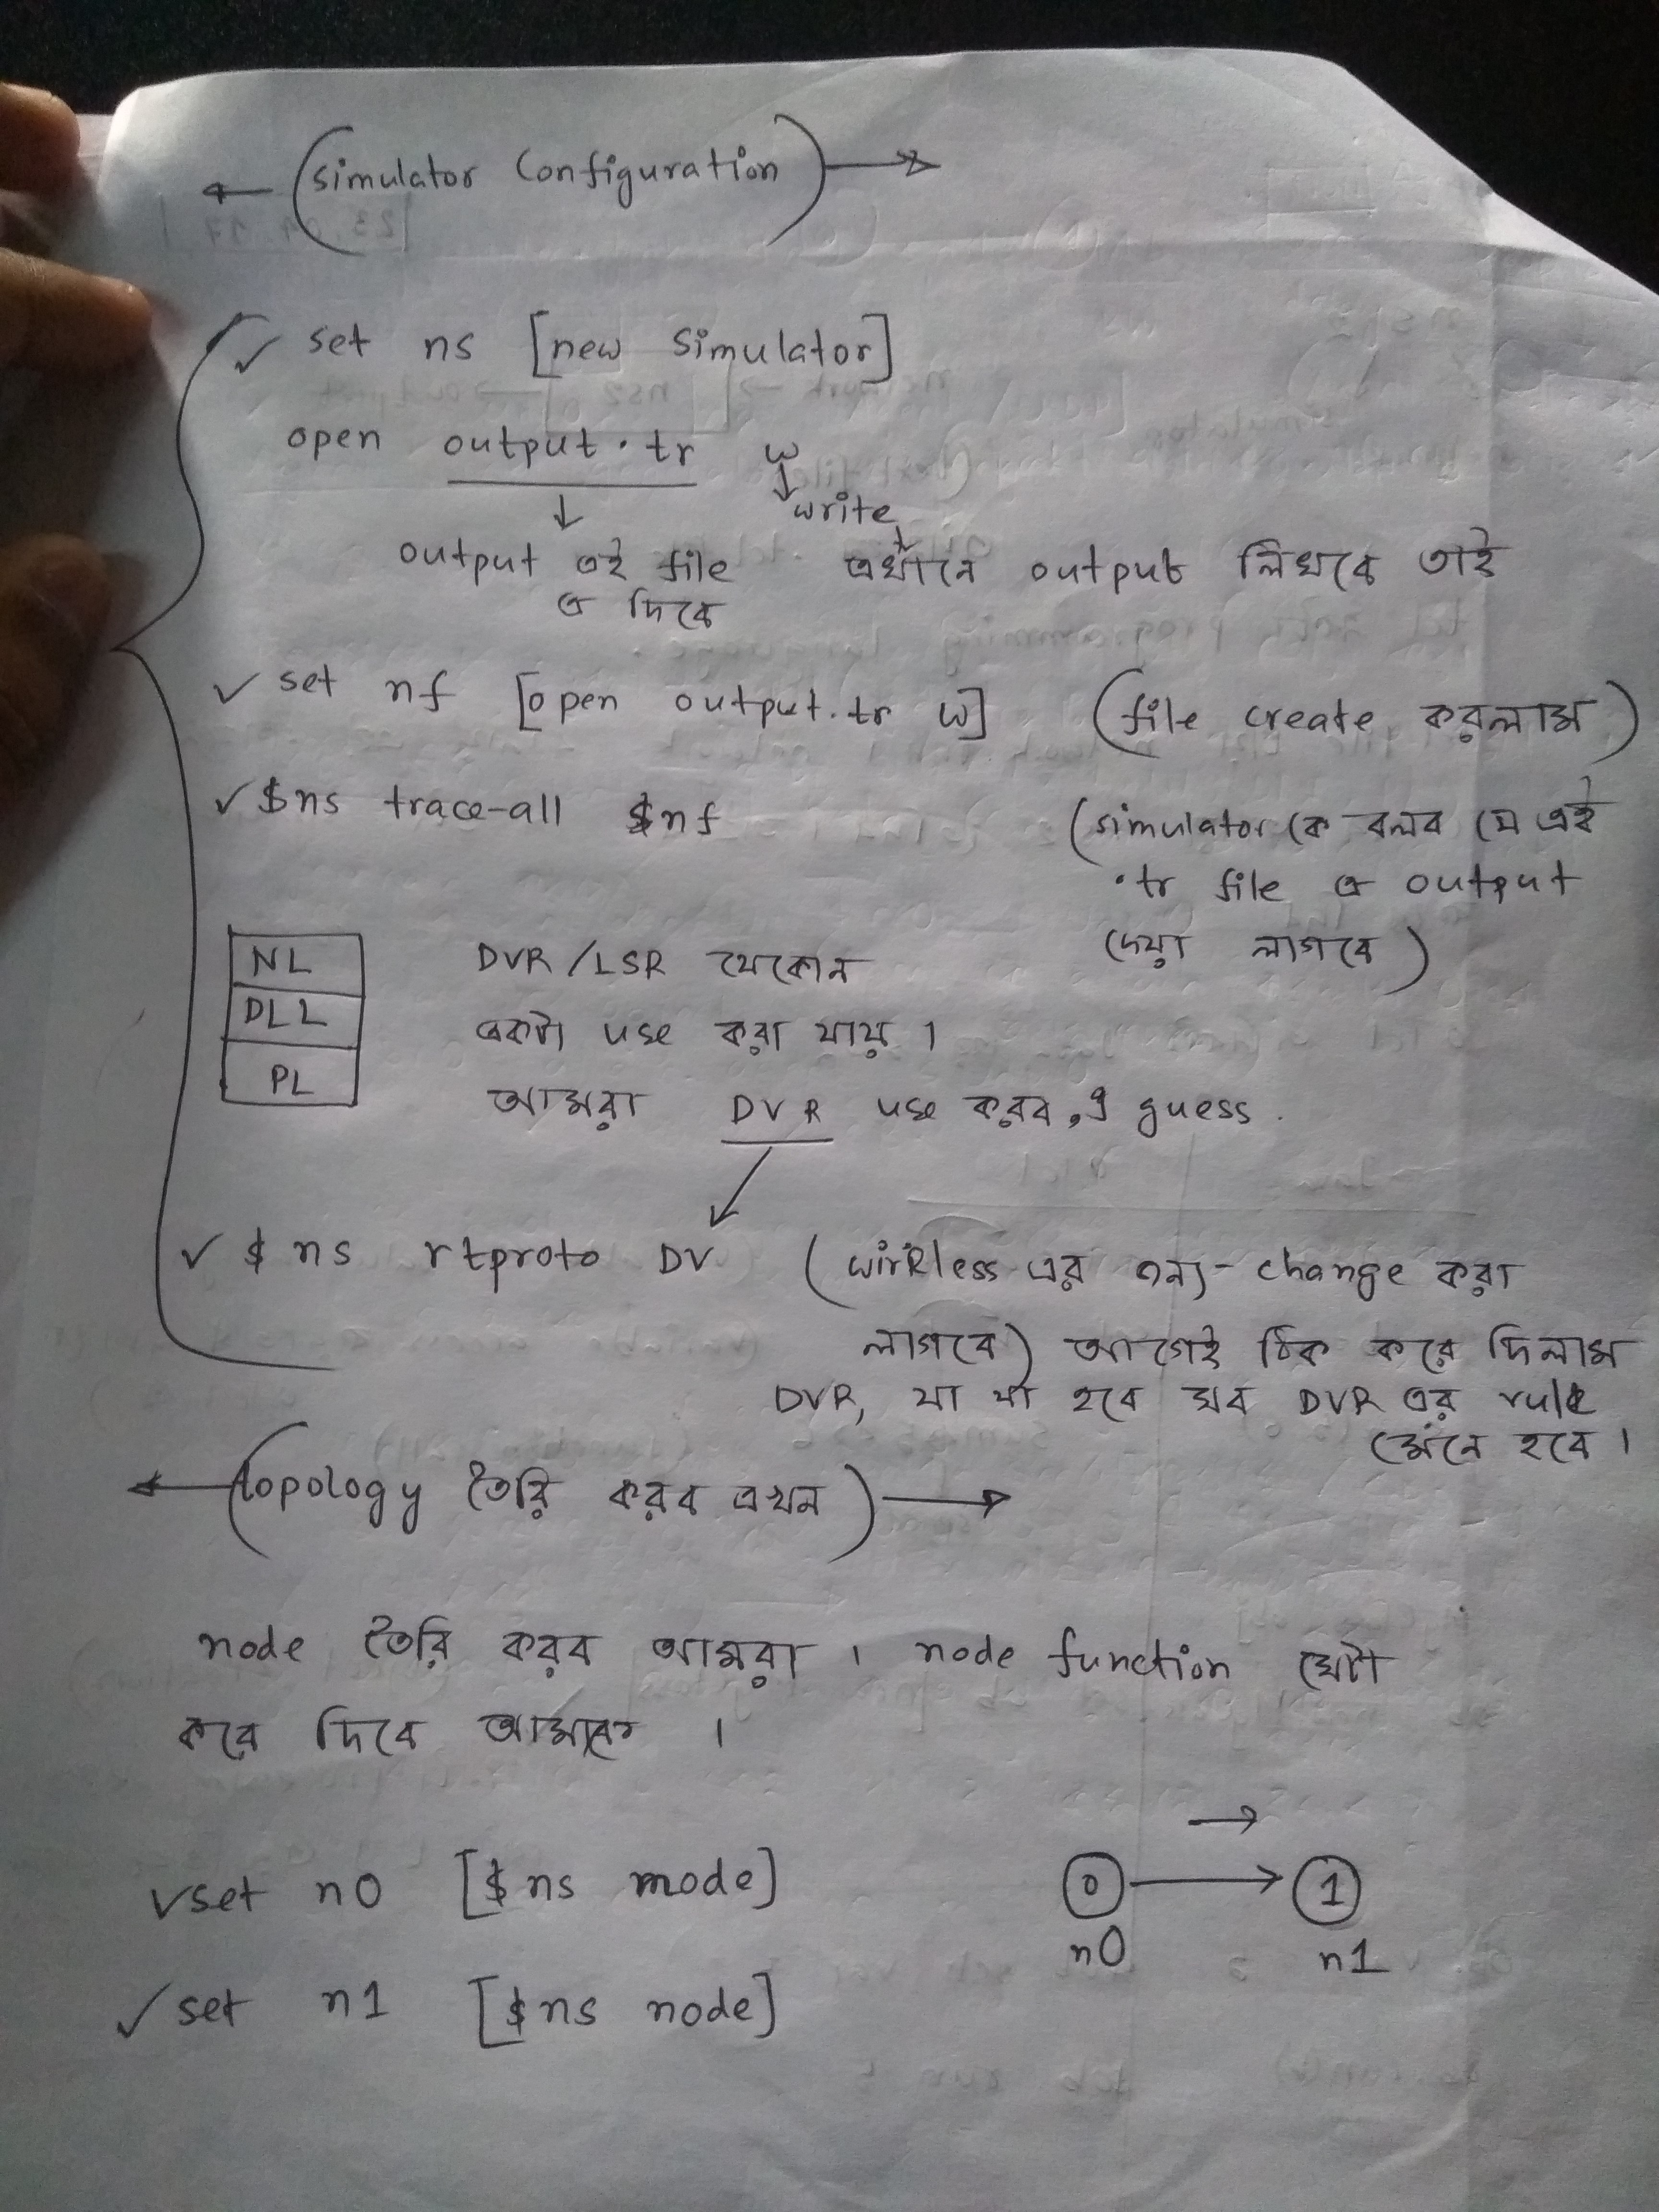 (simulator Configuration)
✓ set ns [new simulator]
open output.tr w
write
output এই file এখানে output লিখবে তাই
এ দিবে
✓ set nf [open output.tr w] (file create করলাম)
✓ $ns trace-all $nf (simulator কে বলব যে এই
.tr file এ output
দেয়া লাগবে)
NL
DLL
PL
DVR/LSR যেকোন
একটা use করা যায়।
আমরা DVR use করব, I guess.
✓ $ns rtproto DV (wirless এর জন্য change করা
লাগবে) আগেই ঠিক করে দিলাম
DVR, যা যা হবে সব DVR এর rule
মেনে হবে।
(topology তৈরি করব এখন)
node তৈরি করব আমরা। node function সেটা
করে দিবে ।
✓ set n0 [$ns node]
0 1
n0 n1
✓ set n1 [$ns node]